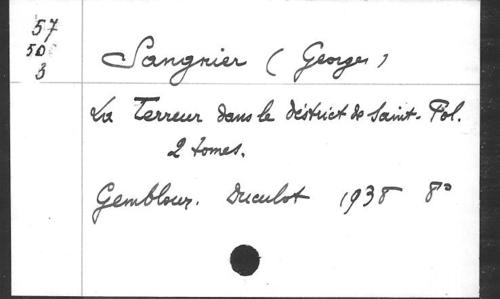 57
50
3
Sangnier (Georges)
La Terreur dans le district de Saint-Pol.
2 tomes.
Gembloux. Duculot 1938 8°